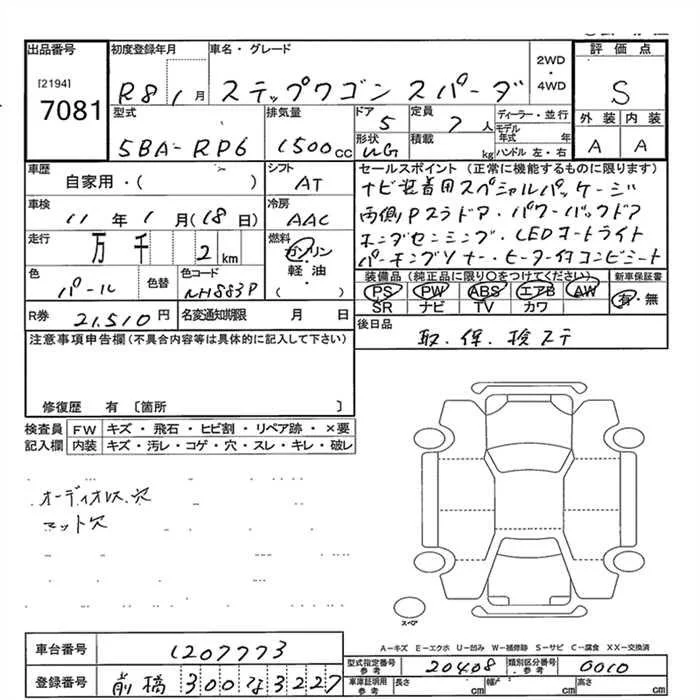 出品番号
[2194]
7081
初度登録年月
R8 1月
車名・グレード
ステップワゴン スパーダ
2WD
・
4WD
評価点
S
外装 内装
A A
型式
5BA-RP6
排気量
1500cc
ドア
5
形状
WG
定員
7人
積載
kg
ディーラー・並行
モデル年式 年
ハンドル 左・右
車歴
自家用・( )
シフト
AT
車検
11年1月(18日)
冷房
AAC
走行
万 千 2 km
燃料
ガソリン
軽・油
( )
色
パール
色替
色コード
NH883P
R券
21,510円
名変通知期限
月 日
セールスポイント (正常に機能するものに限ります)
ナビ装着用スペシャルパッケージ
両側Pスラドア・パワーバックドア
ホンダセンシング・LEDオートライト
パーキングソナー・ヒーター付コンビシート
装備品 (純正品に限り〇をつけてください)
PS PW ABS エアB AW
SR ナビ TV カワ
新車保証書
有・無
後日品
取・保・検ステ
注意事項申告欄(不具合内容等は具体的に記入して下さい)
修復歴 有 〔箇所 〕
検査員記入欄
FW キズ・飛石・ヒビ割・リペア跡・×要
内装 キズ・汚レ・コゲ・穴・スレ・キレ・破レ
オーディオレス.穴
マット欠
スペア
A-キズ E-エクボ U-凹み W-補修跡 S-サビ C-腐食 XX-交換済
車台番号
1207773
登録番号
前橋 300 な 3227
型式指定番号
参考
20408
類別区分番号
参考
0010
車庫証明用
参考
長さ cm
幅 cm
高さ cm